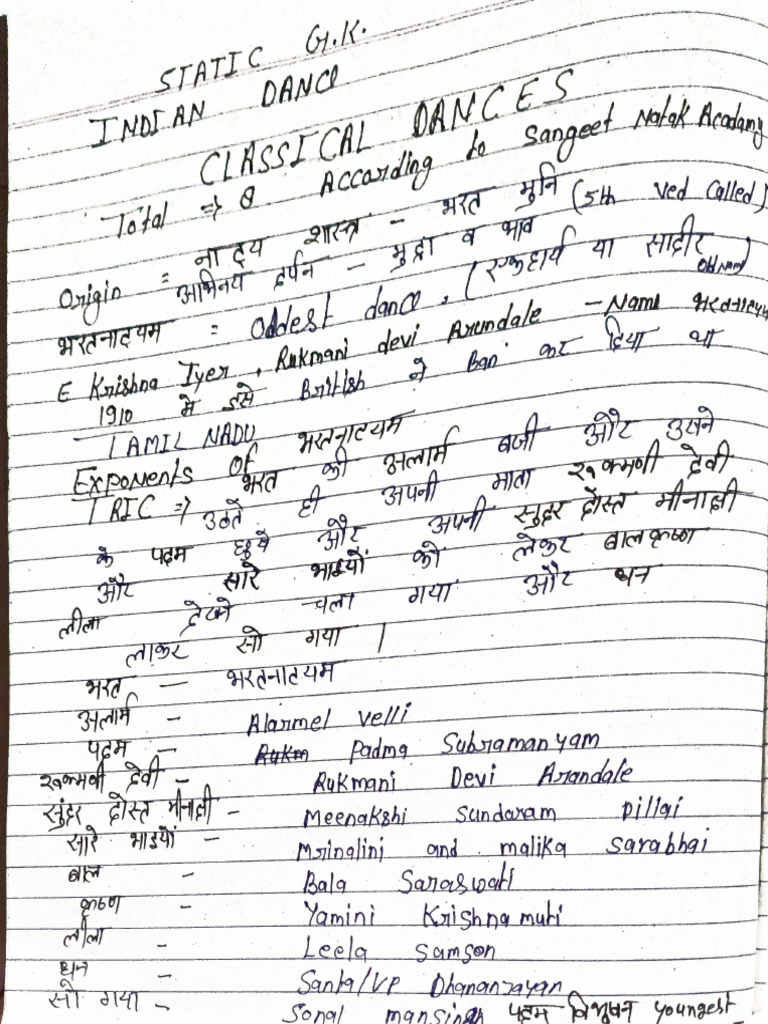 STATIC G.K.
INDIAN DANCE
CLASSICAL DANCES
Total => 8 According to Sangeet Natak Acadamy
Origin = नाट्य शास्त्र - भरत मुनि (5th Ved Called)
अभिनय दर्पन - मुद्रा व भाव
भरतनाट्यम = Oddest dance, (एकहार्य या सादीर Old Name)
E Krishna Iyer, Rukmani devi Arundale - Name भरतनाट्यम
1910 मे इसे British ने Ban कर दिया था
TAMIL NADU
Exponents Of भरतनाट्यम
TRIC => भरत की अलार्म बजी और उसने
उठते ही अपनी माता रुक्मणी देवी
के पदम छुये और अपनी सुंदर दोस्त मीनाक्षी
और सारे भाइयों को लेकर बालकृष्ण
लीला देखने चला गया और धन
लाकर सो गया |
भरत - भरतनाट्यम
अलार्म - Alarmel Velli
पदम - Padma Subramanyam
रुक्मणी देवी - Rukmani Devi Arandale
सुंदर दोस्त मीनाक्षी - Meenakshi Sundaram Pillai
सारे भाइयों - Mrinalini and malika Sarabhai
बाल - Bala Saraswati
कृष्ण - Yamini Krishnamuti
लीला - Leela Samson
धन - Santa/VP Dhananjayan
सो गया - Sonal mansingh पदम विभूषन youngest